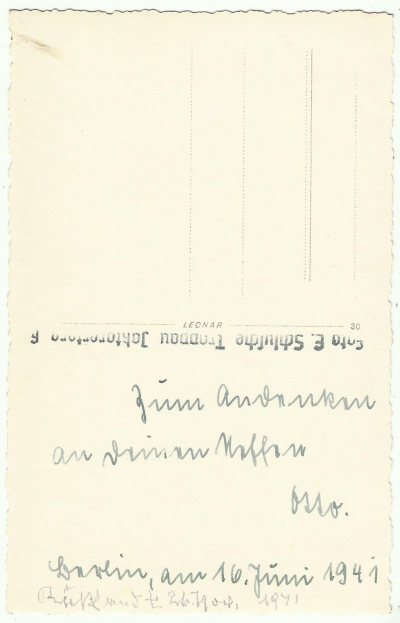 LEONAR 30
Foto E. Schulsche Troppau
Zum Andenken
an deinen Neffen
Otto.
Berlin, am 16. Juni 1941
Rußland † 26. Nov. 1941